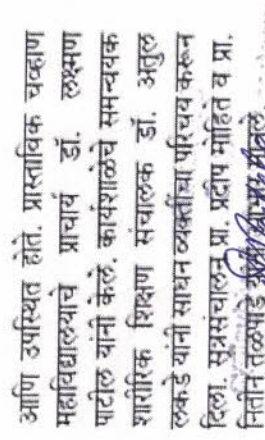 आणि उपस्थित होते. प्रास्ताविक चव्हाण
महाविद्यालयाचे प्राचार्य डॉ. लक्ष्मण
पाटील यांनी केले. कार्यशाळेचे समन्वयक
शारीरिक शिक्षण संचालक डॉ. अतुल
लकडे यांनी साधन व्यक्तींचा परिचय करून
दिला. सूत्रसंचालन प्रा. प्रदीप मोहिते व प्रा.
नितीन तळपाडे